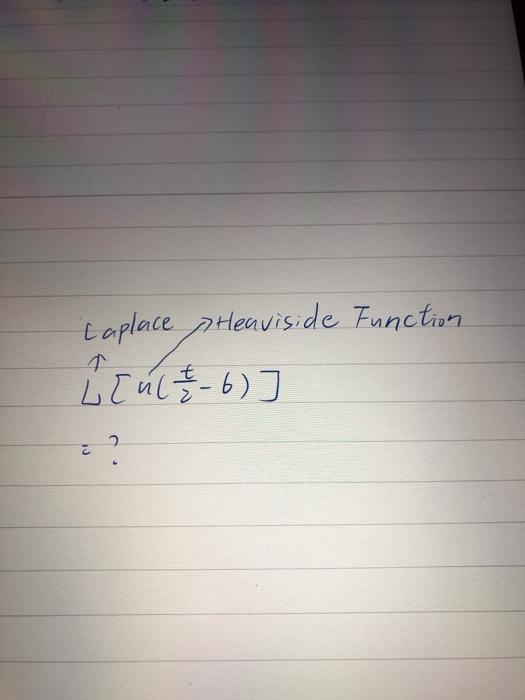 Laplace → Heaviside Function
↑
L[u(t/2 - 6)]
= ?